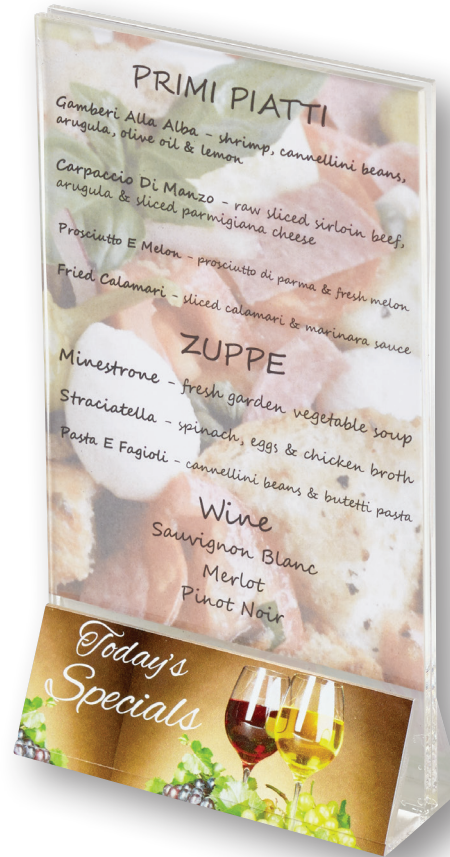 PRIMI PIATTI
Gamberi Alla Alba - shrimp, cannellini beans,
arugula, olive oil & lemon
Carpaccio Di Manzo - raw sliced sirloin beef,
arugula & sliced parmigiana cheese
Prosciutto E Melon - prosciutto di parma & fresh melon
Fried Calamari - sliced calamari & marinara sauce
ZUPPE
Minestrone - fresh garden vegetable soup
Straciatella - spinach, eggs & chicken broth
Pasta E Fagioli - cannellini beans & butetti pasta
Wine
Sauvignon Blanc
Merlot
Pinot Noir
Today's
Specials